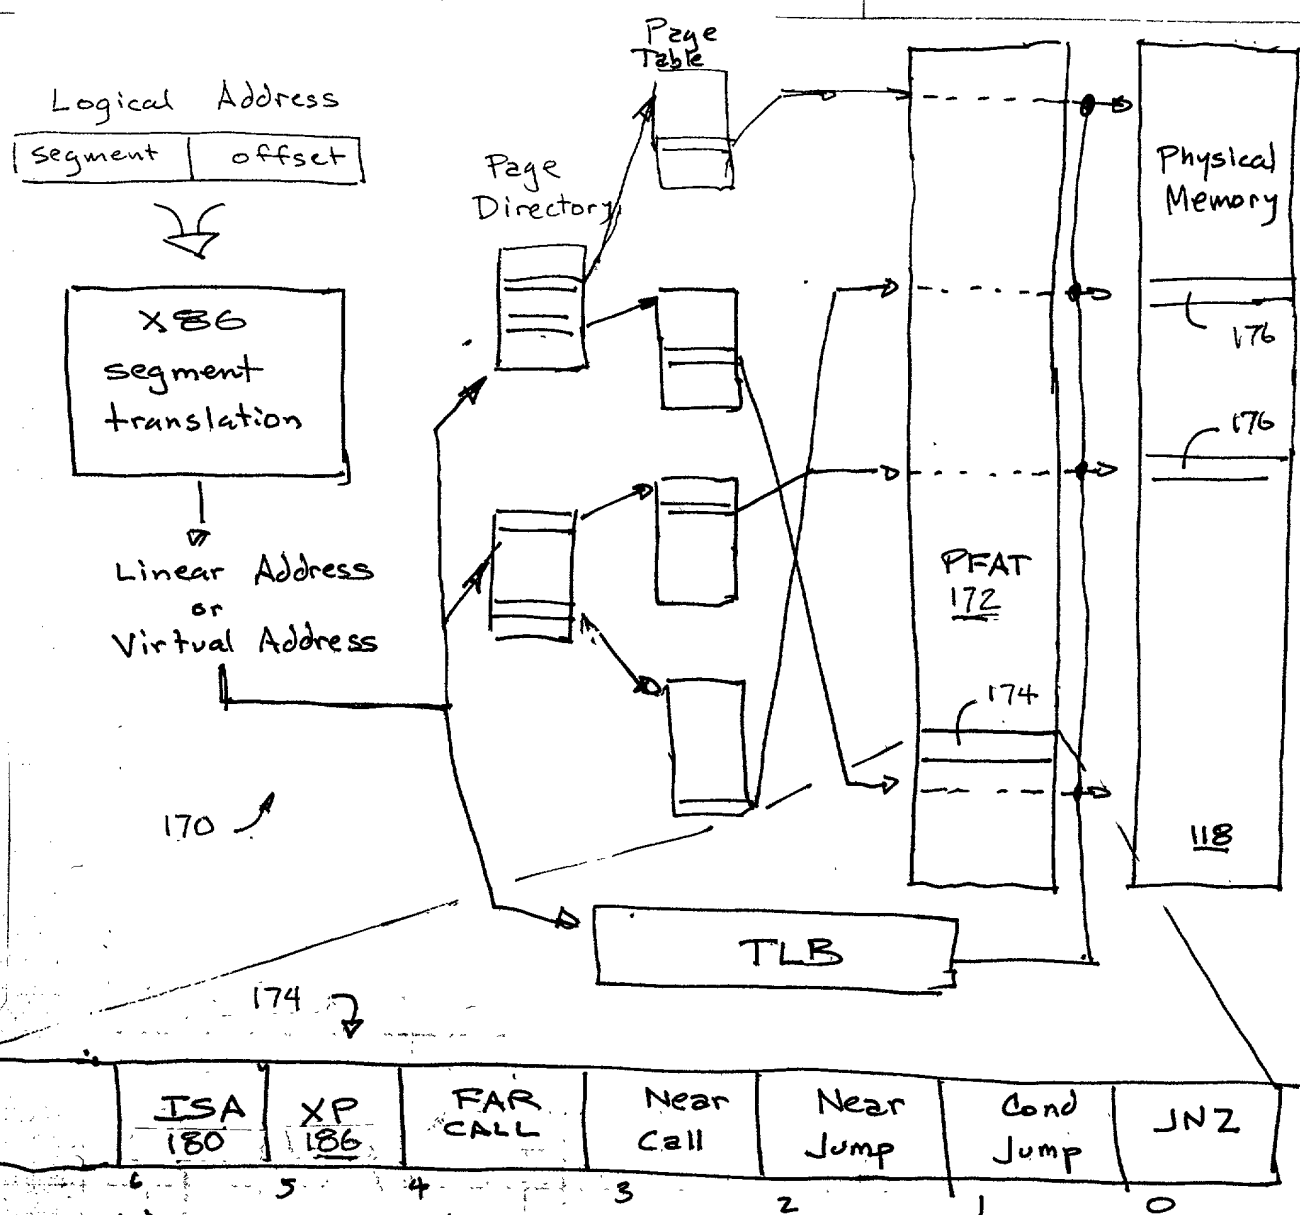 Logical Address
segment offset
X86
segment
translation
Linear Address
or
Virtual Address
170
Page
Directory
Page
Table
PFAT
172
174
Physical
Memory
176
176
118
TLB
174
ISA
180
XP
186
FAR
CALL
Near
Call
Near
Jump
Cond
Jump
JNZ
6 5 4 3 2 1 0